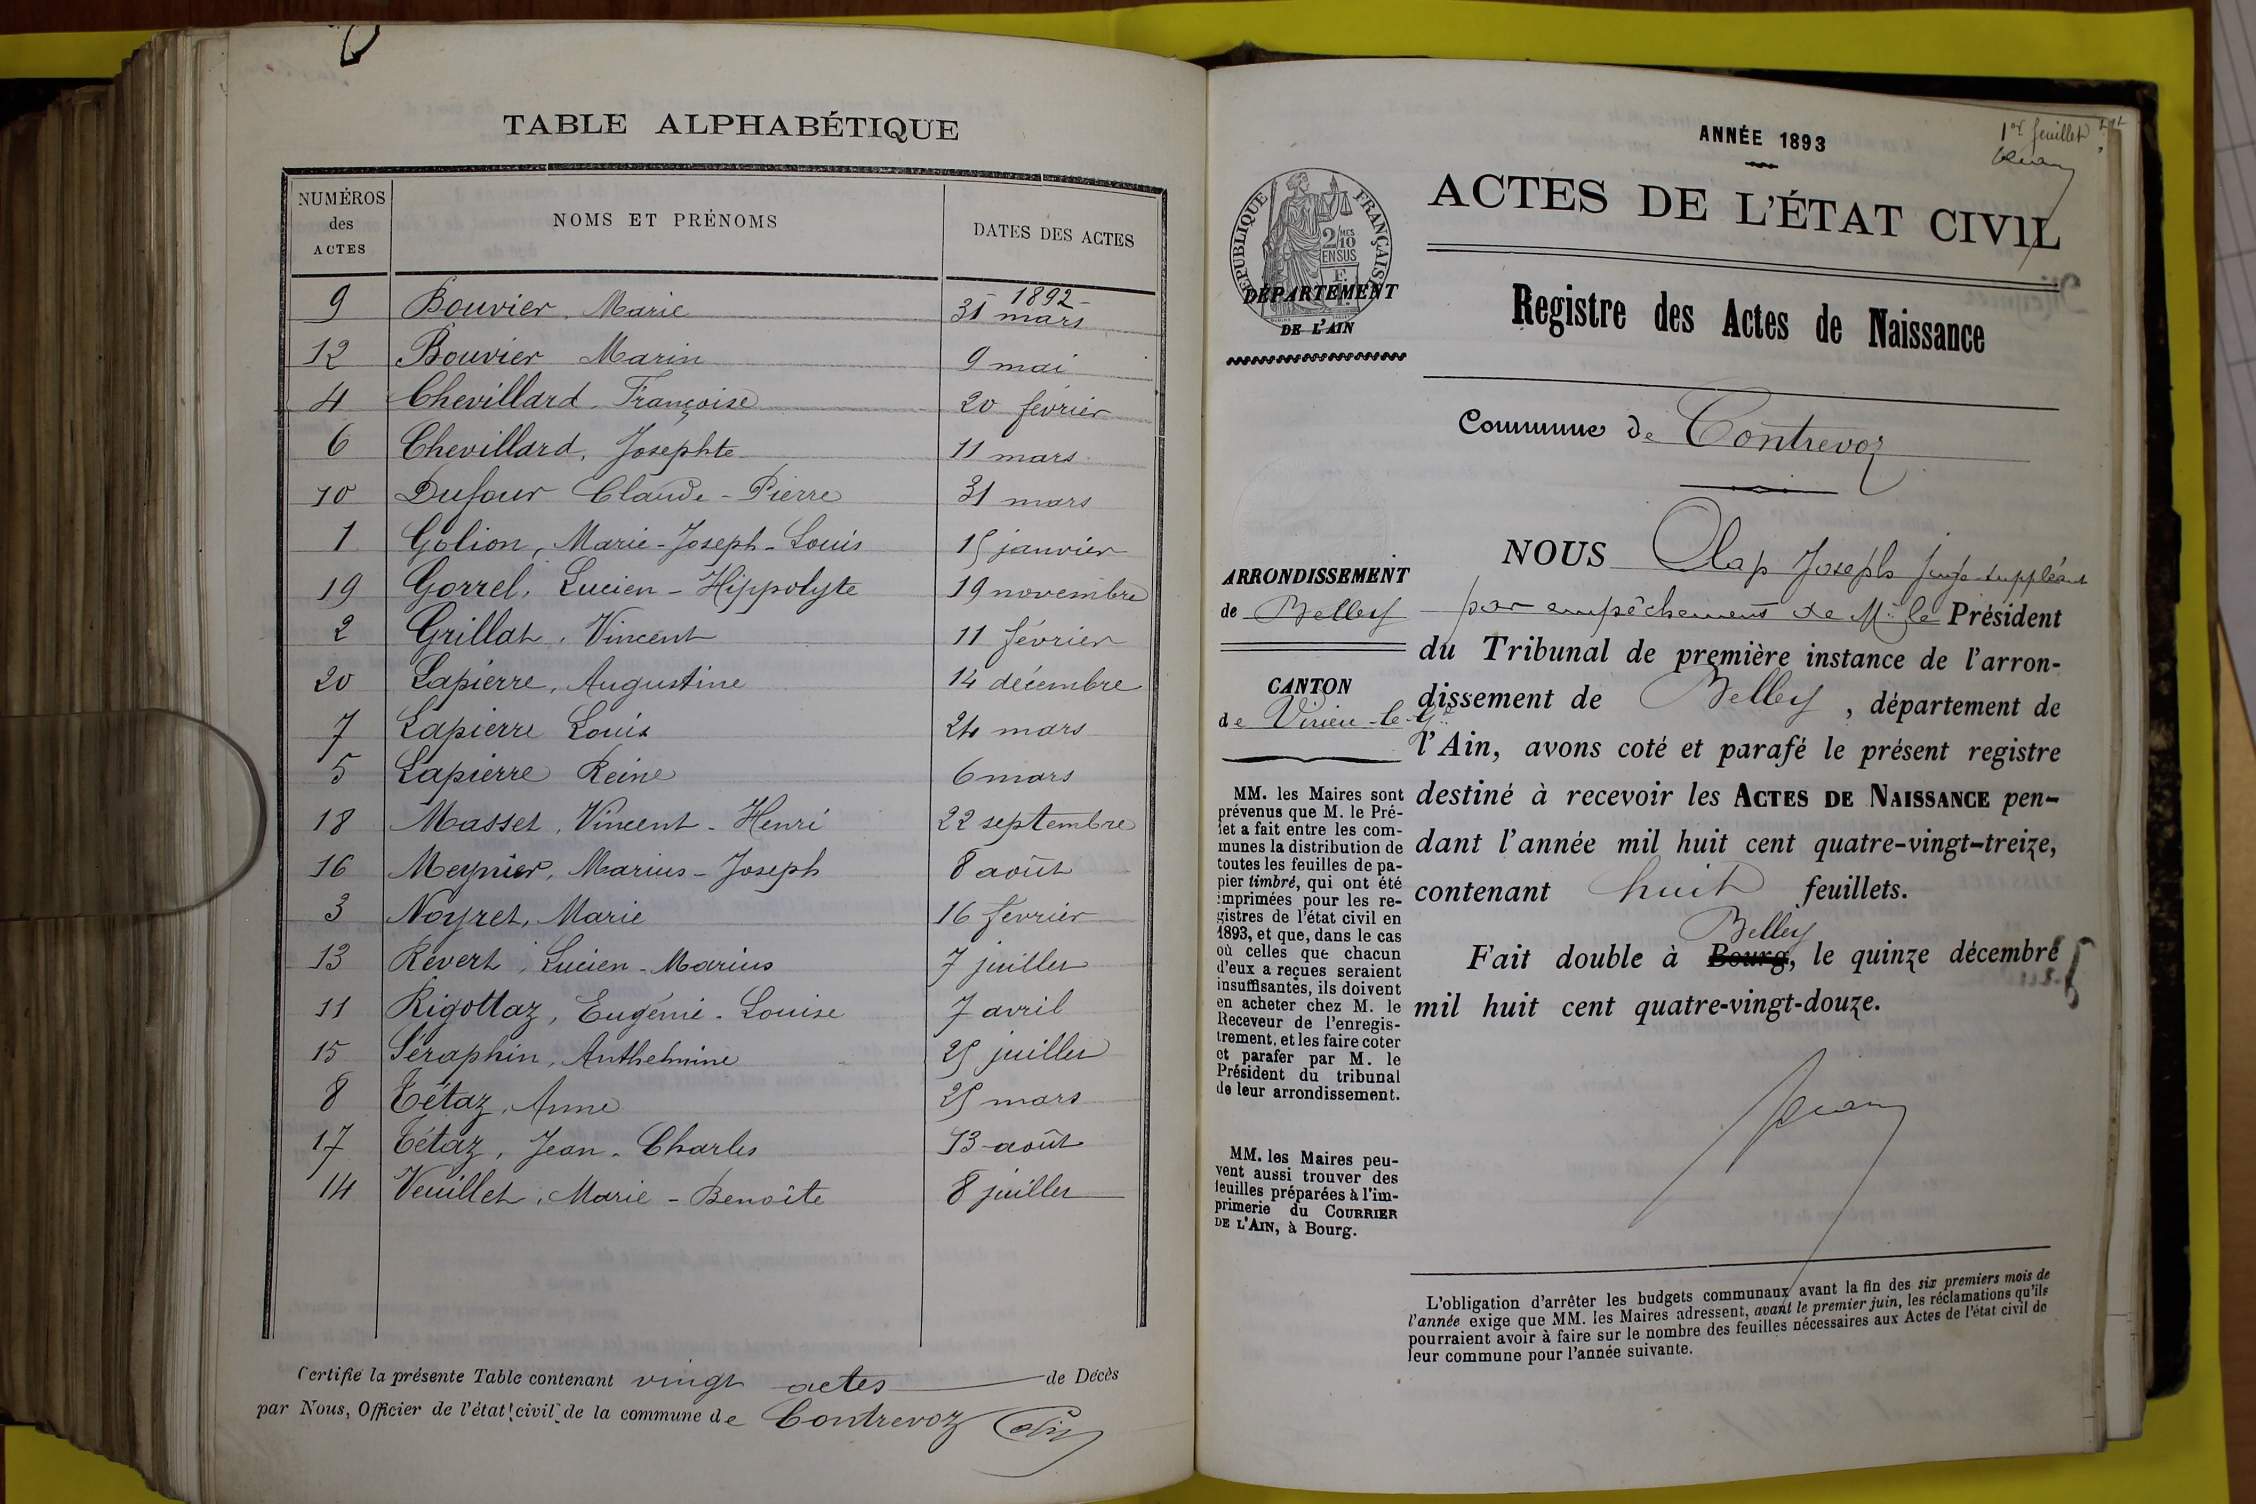 TABLE ALPHABÉTIQUE
NUMÉROS des ACTES NOMS ET PRÉNOMS DATES DES ACTES
1892
9 Bouvier, Marie 31 mars
12 Bouvier Marin 9 mai
4 Chevillard, Françoise 20 février
6 Chevillard, Josephte 11 mars
10 Dufour Claude-Pierre 31 mars
1 Golion, Marie-Joseph-Louis 15 janvier
19 Gorrel, Lucien-Hippolyte 19 novembre
2 Grillat, Vincent 11 février
20 Lapierre, Augustine 14 décembre
7 Lapierre Louis 24 mars
5 Lapierre Reine 6 mars
18 Masset, Vincent-Henri 22 septembre
16 Meynier, Marius-Joseph 8 août
3 Noyret, Marie 16 février
13 Révert, Lucien-Marius 7 juillet
11 Rigottaz, Eugénie-Louise 7 avril
15 Séraphin, Anthelmine 25 juillet
8 Tétaz, Anne 25 mars
17 Tétaz, Jean-Charles 13 août
14 Veuillet, Marie-Benoîte 8 juillet
Certifié la présente Table contenant vingt actes de Décès
par Nous, Officier de l'état civil de la commune de Contrevoz
1er feuillet
ANNÉE 1893
ACTES DE L'ÉTAT CIVIL
RÉPUBLIQUE FRANÇAISE
2/10
EN SUS
DÉPARTEMENT
DE L'AIN
Registre des Actes de Naissance
Commune de Contrevoz
ARRONDISSEMENT
de Belley
CANTON
de Virieu-le-Gd
MM. les Maires sont
prévenus que M. le Pré-
fet a fait entre les com-
munes la distribution de
toutes les feuilles de pa-
pier timbré, qui ont été
imprimées pour les re-
gistres de l'état civil en
1893, et que, dans le cas
où celles que chacun
d'eux a reçues seraient
insuffisantes, ils doivent
en acheter chez M. le
Receveur de l'enregis-
trement, et les faire coter
et parafer par M. le
Président du tribunal
de leur arrondissement.
MM. les Maires peu-
vent aussi trouver des
feuilles préparées à l'im-
primerie du COURRIER
DE L'AIN, à Bourg.
NOUS Joseph juge suppléant
par empêchement de Mr le Président
du Tribunal de première instance de l'arron-
dissement de Belley, département de
l'Ain, avons coté et parafé le présent registre
destiné à recevoir les ACTES DE NAISSANCE pen-
dant l'année mil huit cent quatre-vingt-treize,
contenant huit feuillets.
Belley
Fait double à Bourg, le quinze décembre
mil huit cent quatre-vingt-douze.
L'obligation d'arrêter les budgets communaux avant la fin des six premiers mois de
l'année exige que MM. les Maires adressent, avant le premier juin, les réclamations qu'ils
pourraient avoir à faire sur le nombre des feuilles nécessaires aux Actes de l'état civil de
leur commune pour l'année suivante.